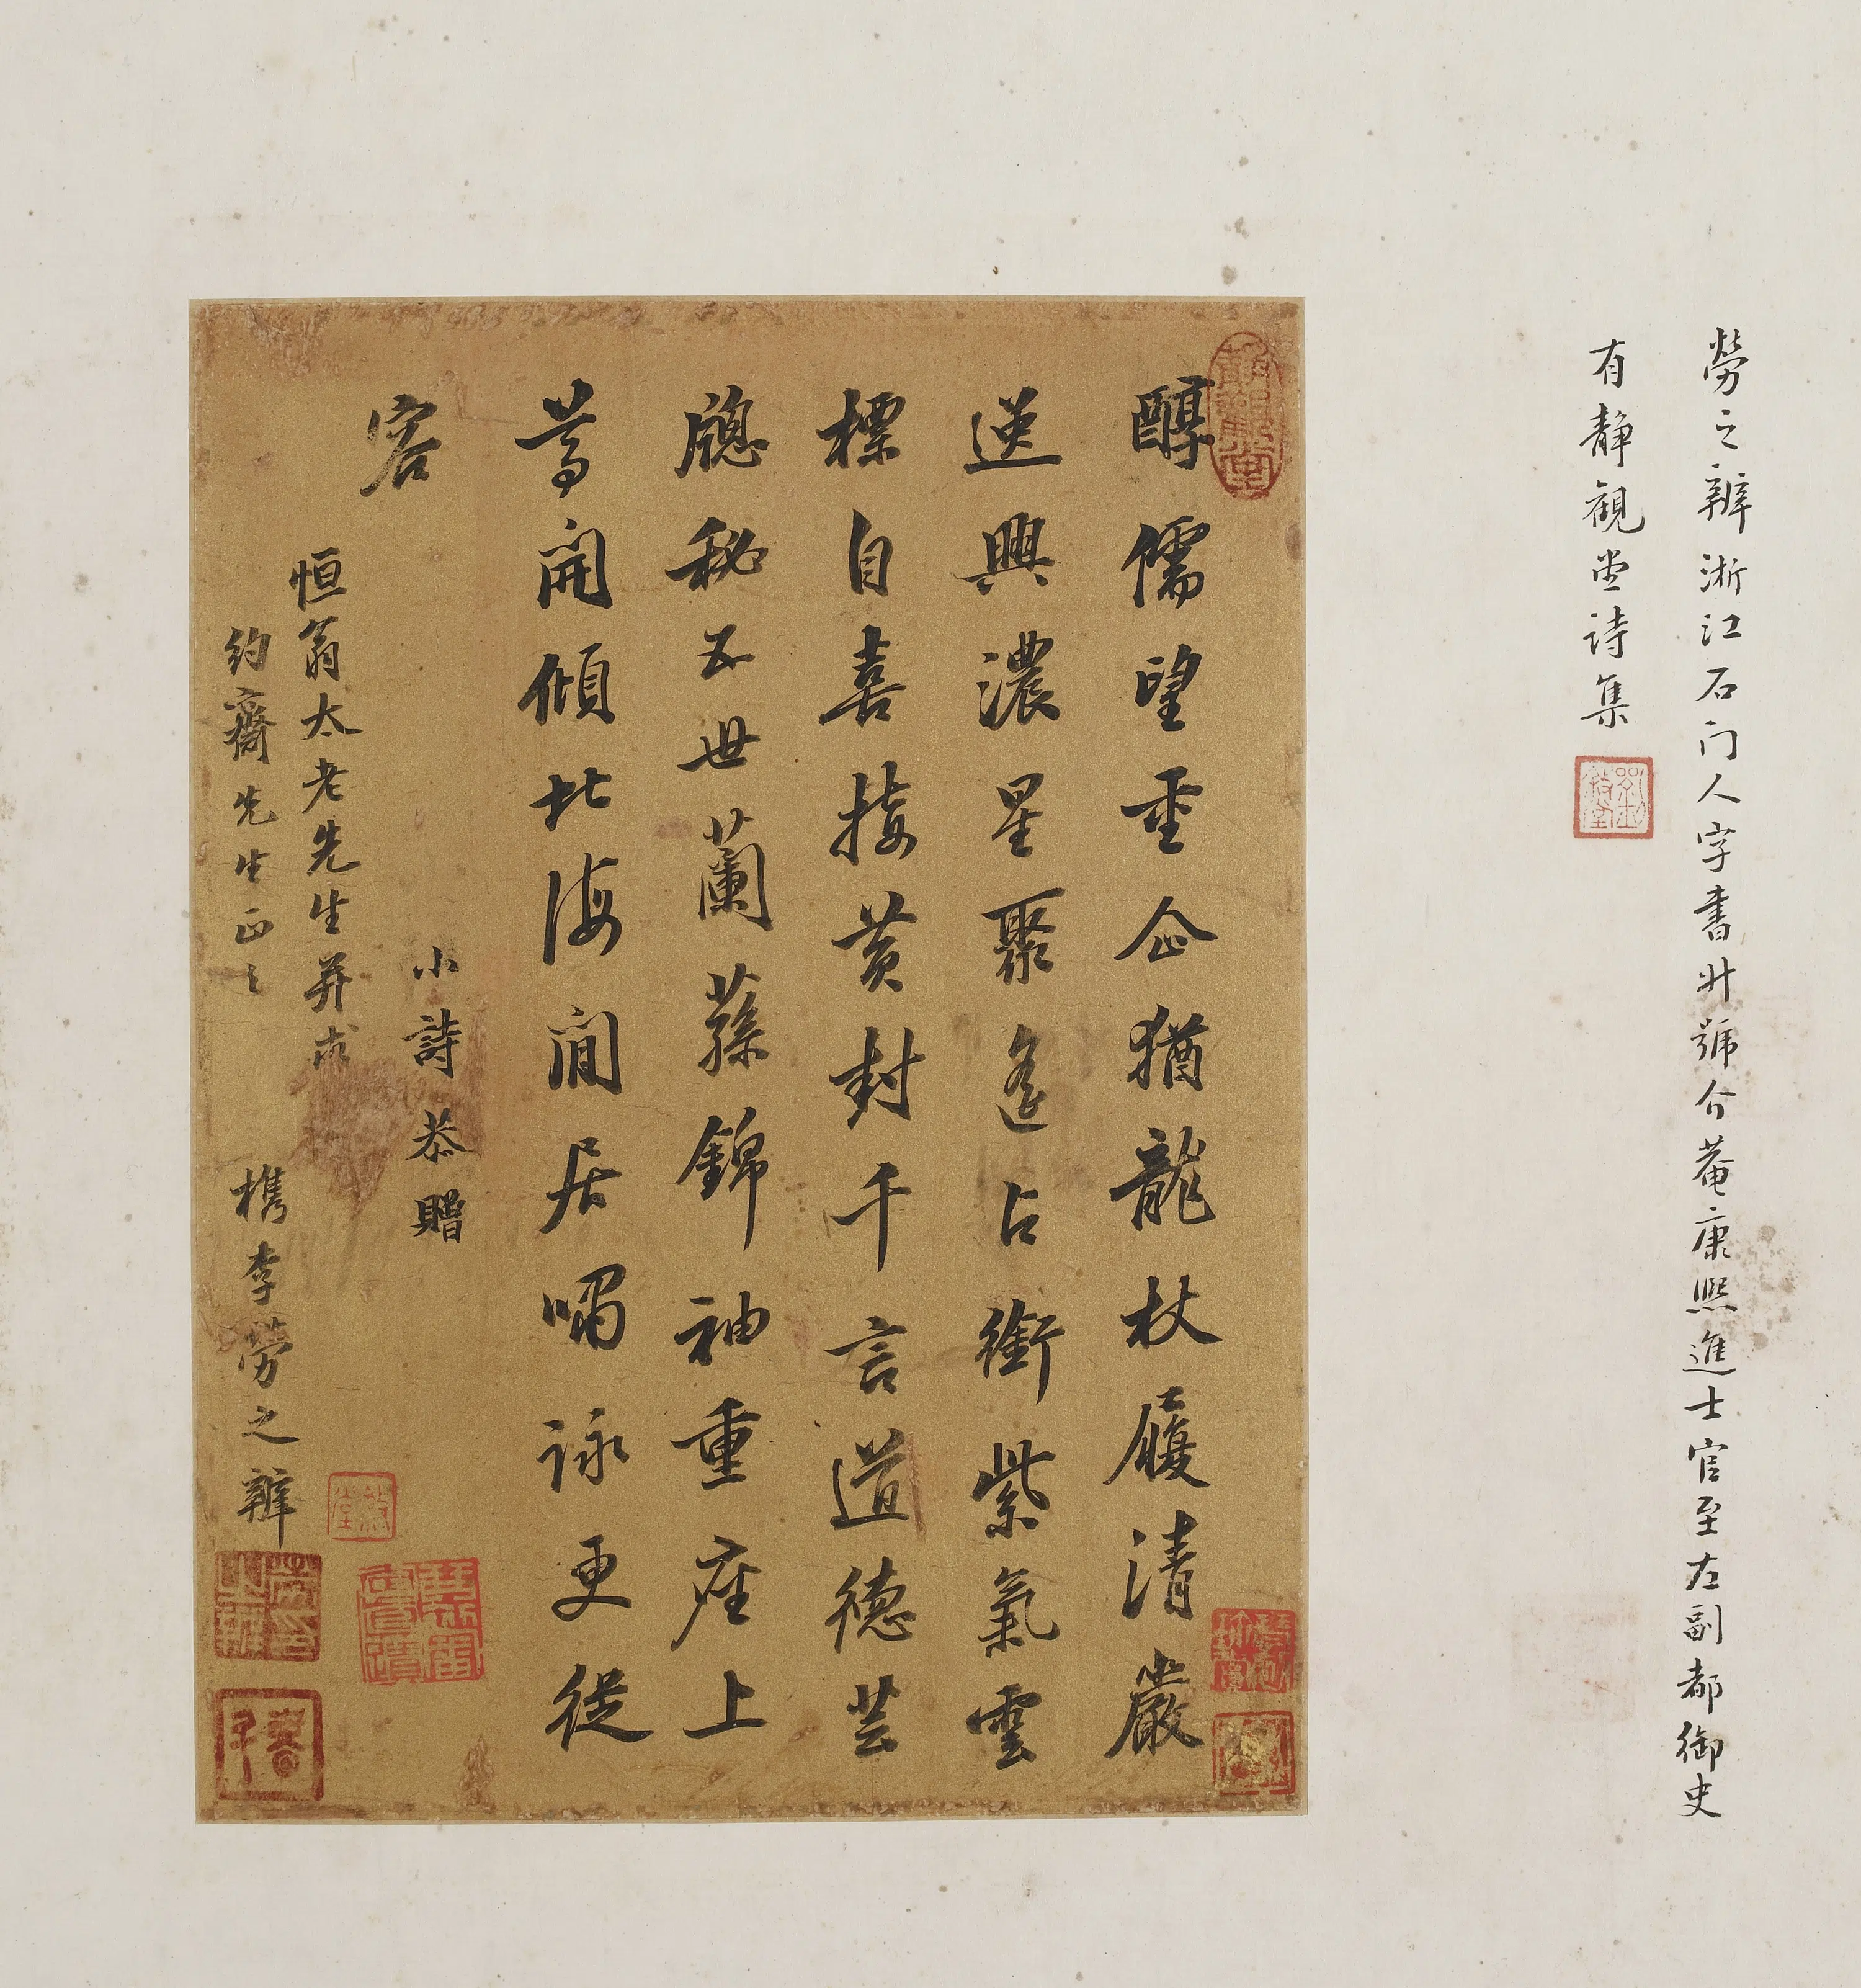 勞之辨浙江石门人字書升號介菴康熙進士官至左副都御史
有静觀堂詩集
靜觀堂
醇儒望重企猶龍杖履清嚴
逸興濃星聚遙占銜紫氣雲
標自喜接黃封千言道德芸
牕秘五世蘭蓀錦袖重座上
尊開傾北海閒居嘯詠更從
容
小詩恭贈
恒翁太老先生并求
約齋先生正之 檇李勞之辨
勞印之辨
書升